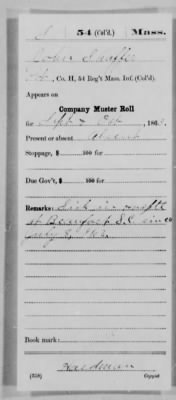 S 54 (Col'd.) Mass.
John Shaffer
Co. H, 54 Reg't Mass. Inf. (Col'd).
Appears on
Company Muster Roll
for Sept & Oct, 186
Present or absent Absent
Stoppage, $ 100 for
Due Gov't, $ 100 for
Remarks: Sick in
at Beaufort S.C. since
July
Book mark:
(358) Copyist